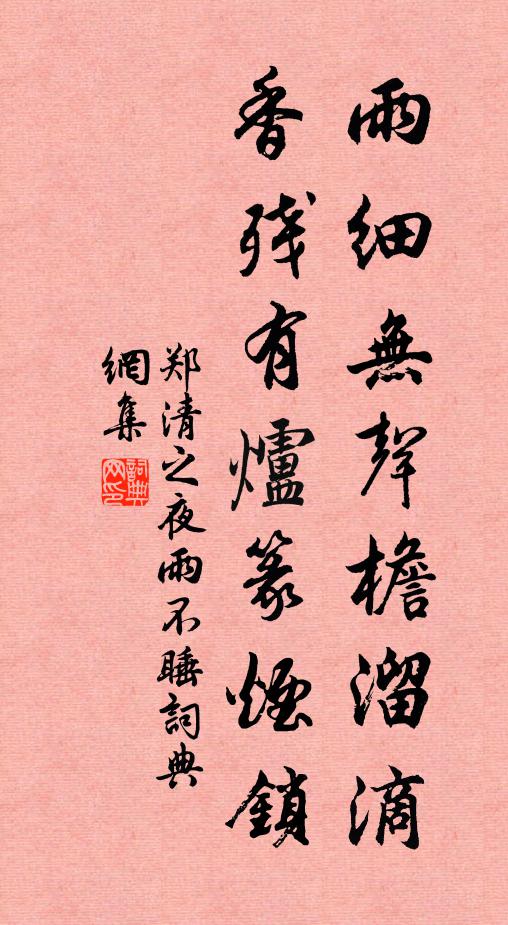 雨细無聲檐溜滴
香残有爐篆煙鎖
郑清之夜雨不睡詞典
網集
詞典网印